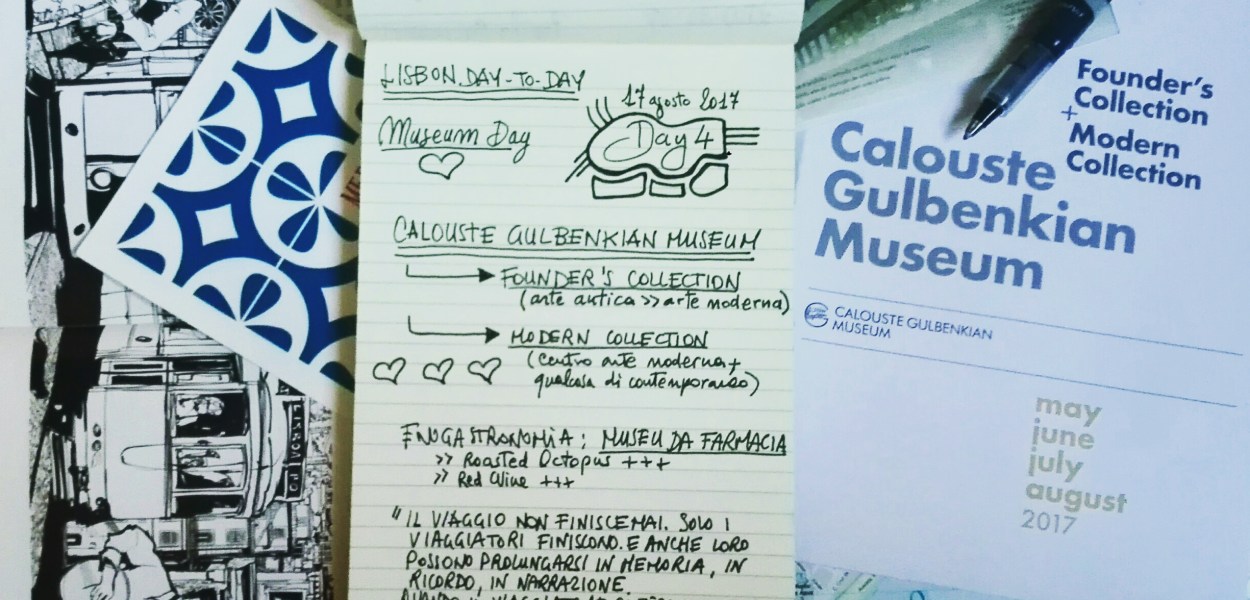 LISBON DAY-TO-DAY
17 agosto 2017
Museum Day
Day 4
CALOUSTE GULBENKIAN MUSEUM
FOUNDER'S COLLECTION
(arte antica >> arte moderna)
MODERN COLLECTION
(centro arte moderna +
qualcosa di contemporaneo)
ENOGASTRONOMIA: MUSEU DA FARMACIA
>> Roasted Octopus +++
>> Red Wine +++
"IL VIAGGIO NON FINISCE MAI. SOLO I
VIAGGIATORI FINISCONO. E ANCHE LORO
POSSONO PROLUNGARSI IN MEMORIA, IN
RICORDO, IN NARRAZIONE.
Founder's
Collection
+
Modern
Collection
Calouste
Gulbenkian
Museum
CALOUSTE GULBENKIAN
MUSEUM
may
june
july
august
2017